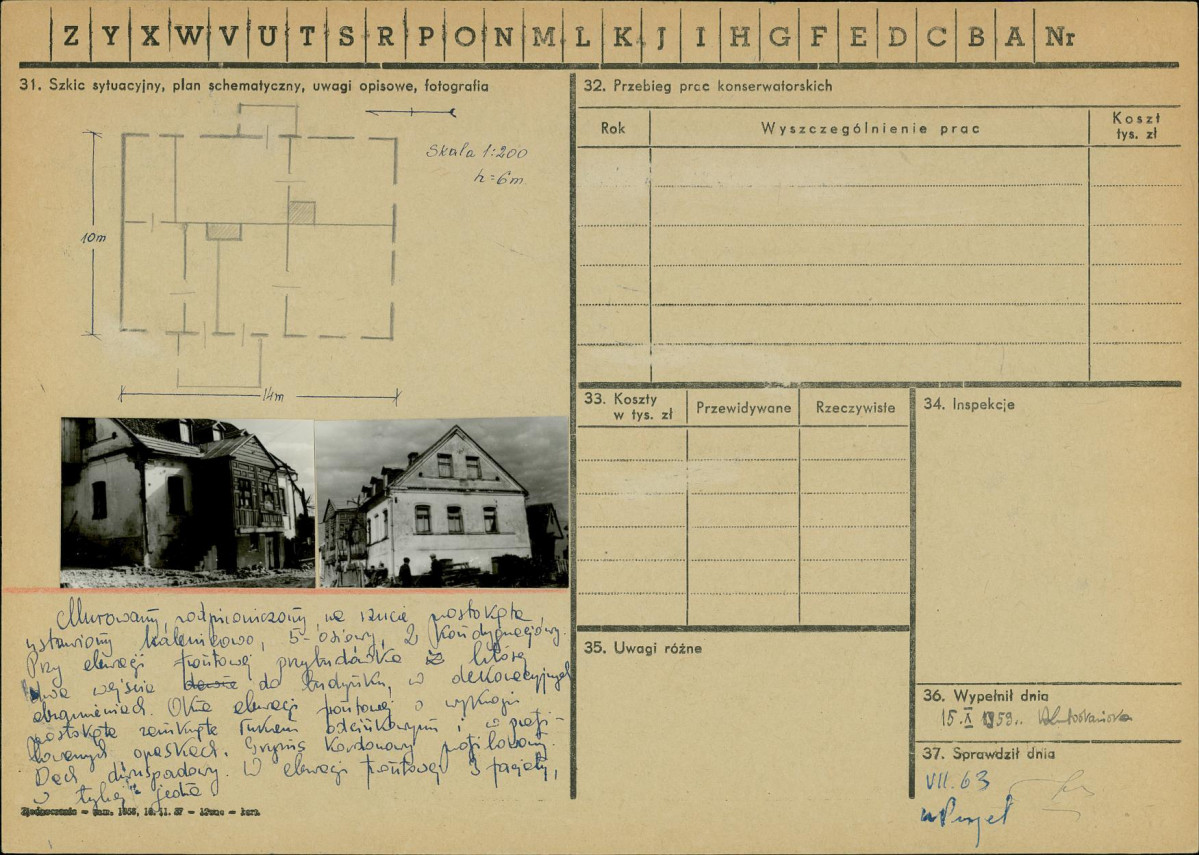 Z Y X W V U T S R P O N M L K J I H G F E D C B A Nr
31. Szkic sytuacyjny, plan schematyczny, uwagi opisowe, fotografia
Skala 1:200
h=6m
10m
14m
Murowany, podpiwniczony, na rzucie prostokąta
ustawiony kalenicowo, 5-osiowy, 2 kondygnacjowy.
Przy elewacji frontowej przybudówka z której
dwa wejścia do budynku, w dekoracyjnych
obramieniach. Okna elewacji frontowej o wykroju
prostokąta zamknięte łukiem odcinkowym i w profi-
lowanych opaskach. Gzyms kordonowy profilowany.
Dach dwuspadowy. W elewacji frontowej 3 facjaty,
w tylnej jedna
32. Przebieg prac konserwatorskich
Rok
Wyszczególnienie prac
Koszt
tys. zł
33. Koszty
w tys. zł
Przewidywane
Rzeczywiste
34. Inspekcje
35. Uwagi różne
36. Wypełnił dnia
15.X 1959r.
37. Sprawdził dnia
VII. 63